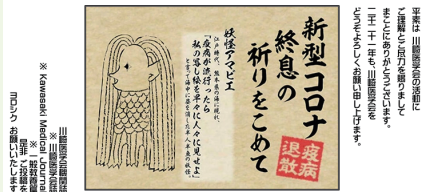 平素は 川崎医学会の活動に
ご理解とご尽力を賜りまして
まことにありがとうございます。
二〇二一年も、川崎医学会を
どうぞよろしくお願い申し上げます。
新型コロナ
終息の
祈りをこめて
疫病
退散
妖怪アマビエ
江戸時代、熊本の海に現れ、
「疫病が流行ったら
私の写し絵を早々に人々に見せよ」
と言って海中に姿を消した半人半魚の妖怪。
川崎医学会機関誌
※ 川崎医学会誌
※ 一般教養篇
※ Kawasaki Medical Journal
是非 ご投稿を
ヨロシク お願いいたします